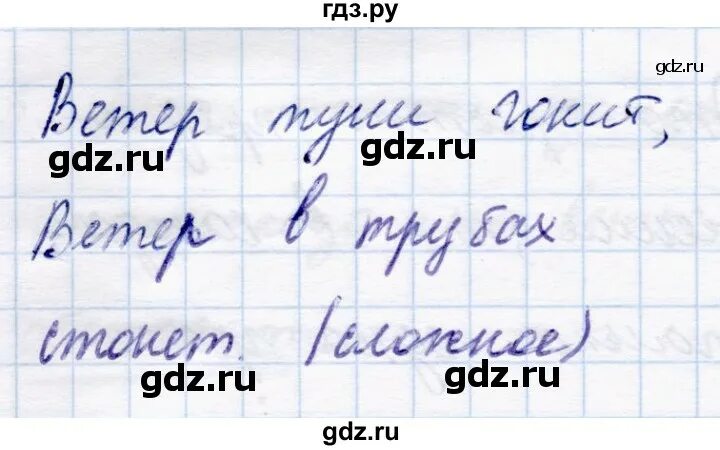 гдз.ру
gdz.ru
Ветер тучи гонит,
gdz.ru gdz.ru
Ветер в трубах
стонет. (сложное)
gdz.ru gdz.ru
gdz.ru